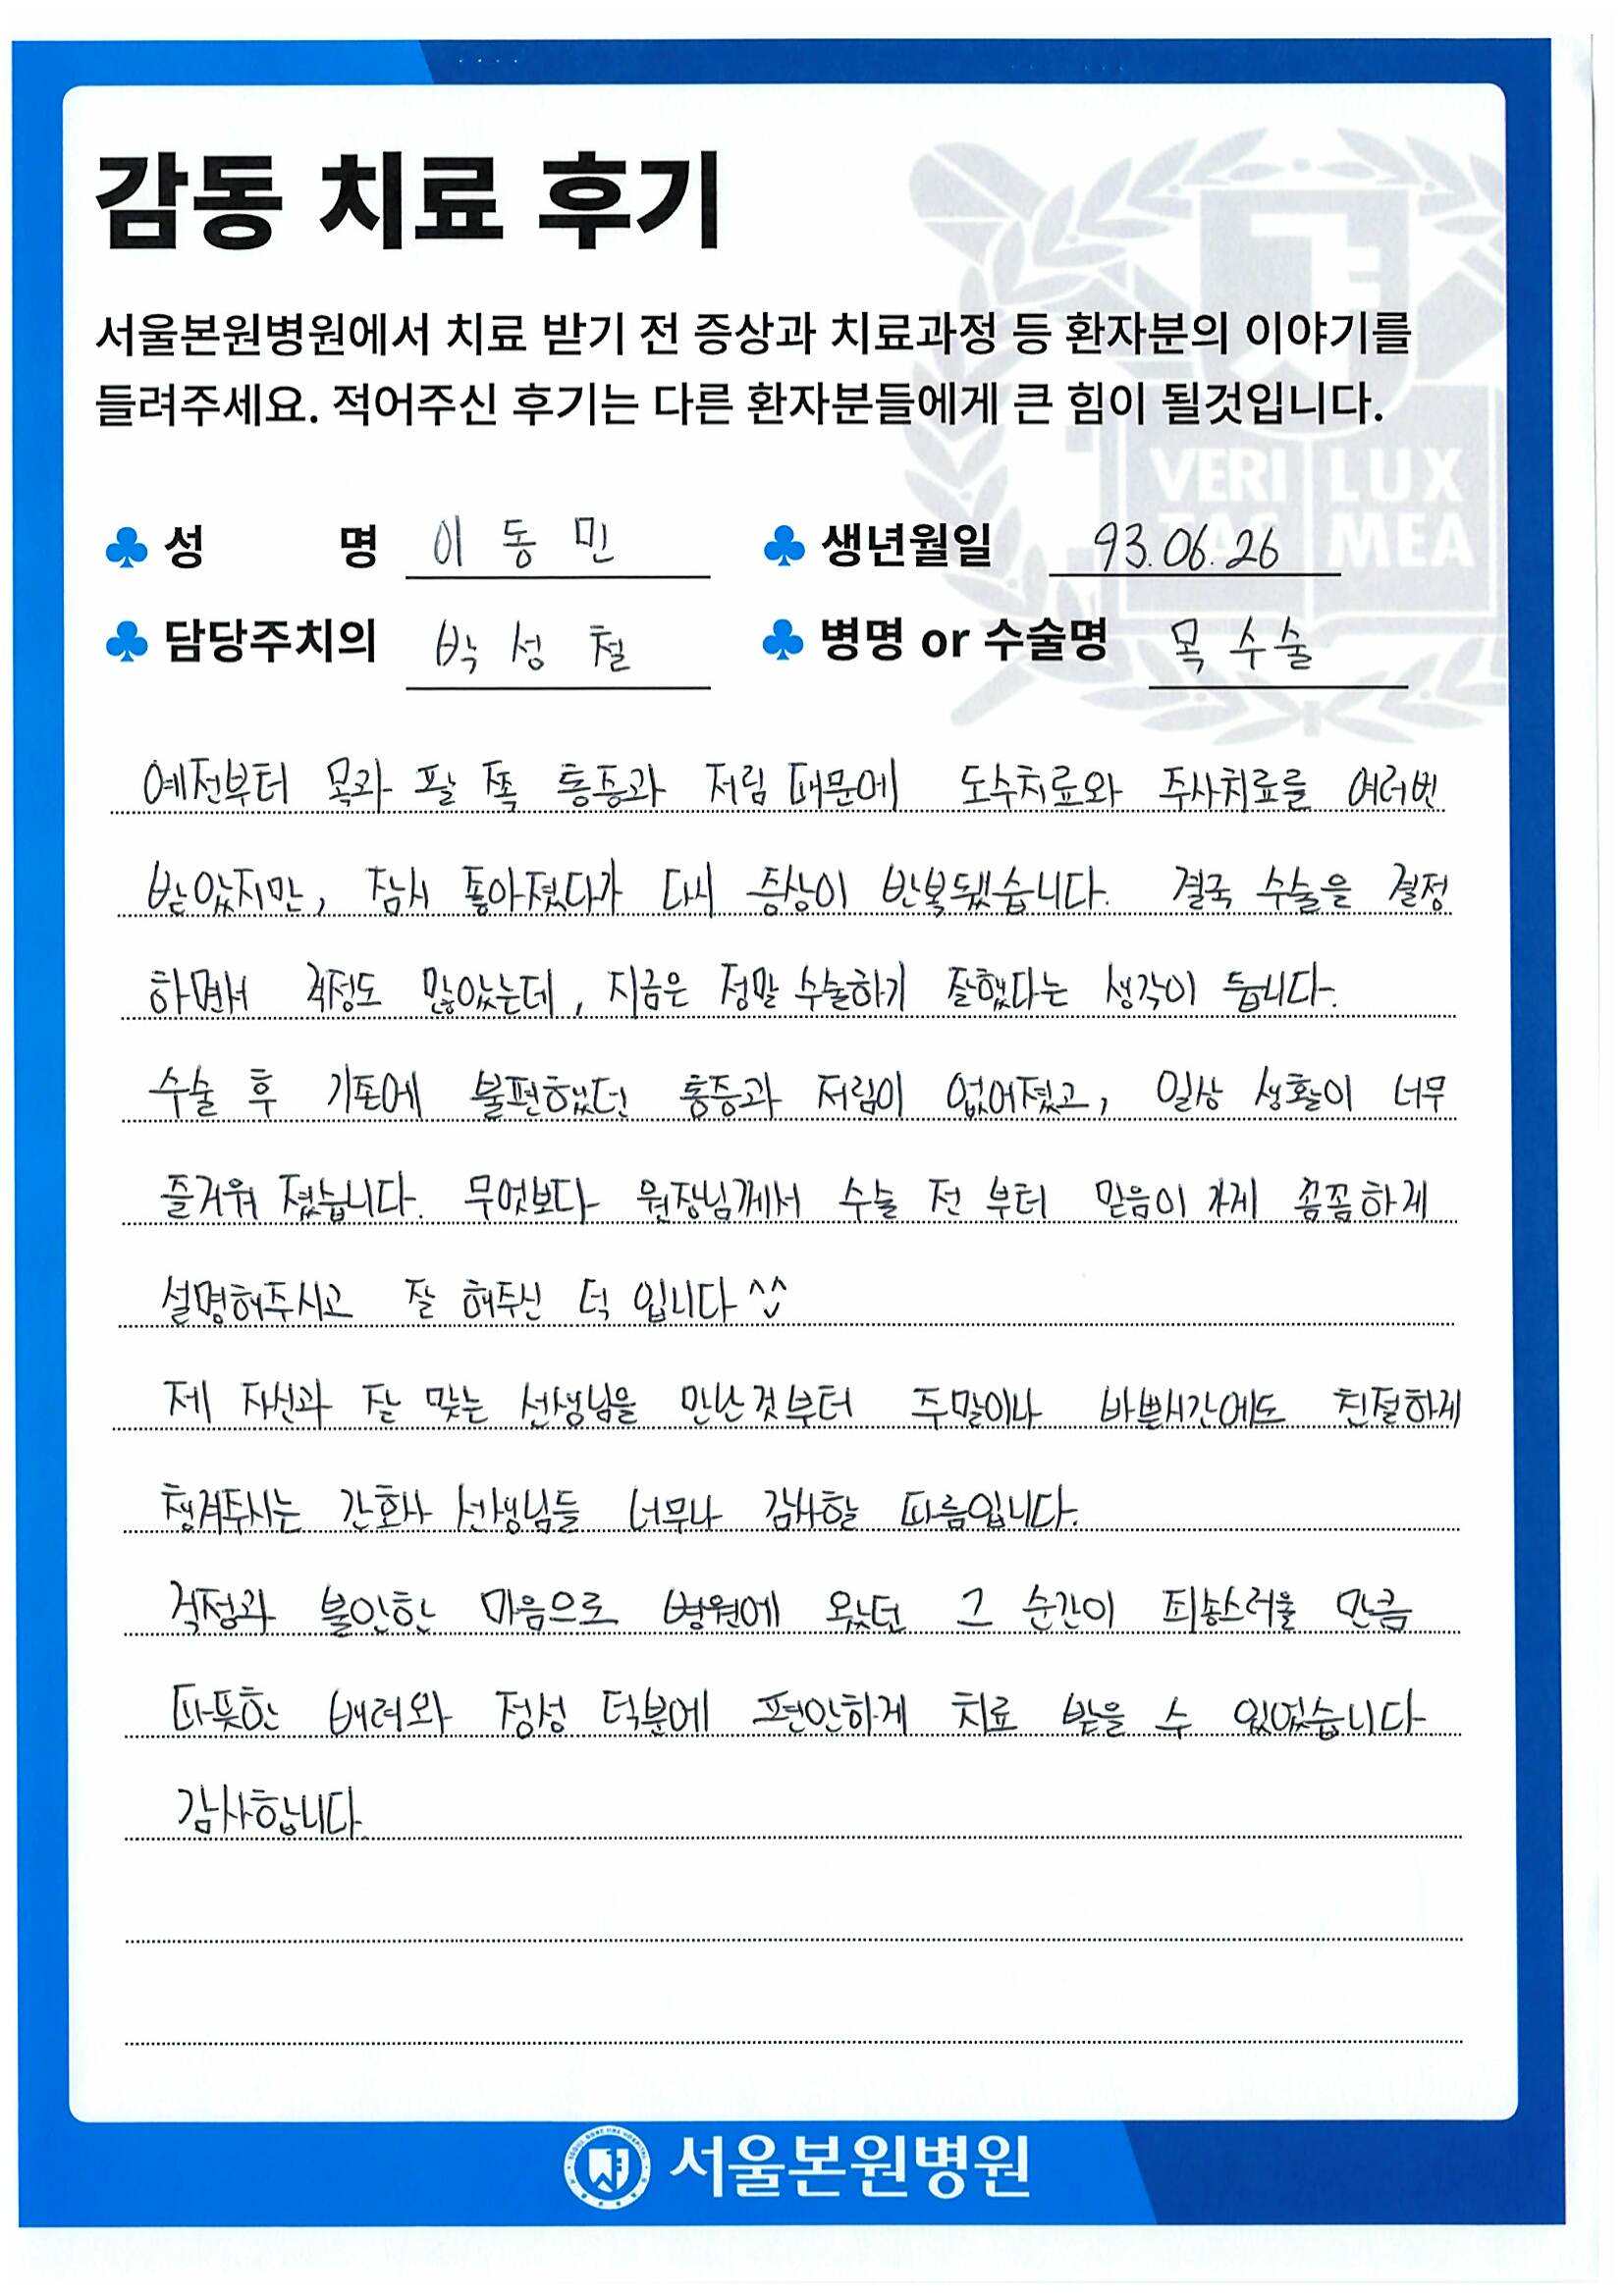 감동 치료 후기
서울본원병원에서 치료 받기 전 증상과 치료과정 등 환자분의 이야기를
들려주세요. 적어주신 후기는 다른 환자분들에게 큰 힘이 될것입니다.
VERI LUX
TAS MEA
성 명 이동민 생년월일 93.06.26
담당주치의 박성철 병명 or 수술명 목 수술
예전부터 목과 팔 쪽 통증과 저림 때문에 도수치료와 주사치료를 여러번
받았지만, 잠시 좋아졌다가 다시 증상이 반복됐습니다. 결국 수술을 결정
하면서 걱정도 많았는데, 지금은 정말 수술하기 잘했다는 생각이 듭니다.
수술 후 기존에 불편했던 통증과 저림이 없어졌고, 일상 생활이 너무
즐거워 졌습니다. 무엇보다 원장님께서 수술 전 부터 믿음이 가게 꼼꼼하게
설명해주시고 잘 해주신 덕 입니다 ^^
제 자신과 잘 맞는 선생님을 만난것부터 주말이나 바쁜시간에도 친절하게
챙겨주시는 간호사 선생님들 너무나 감사할 따름입니다.
걱정과 불안한 마음으로 병원에 왔던 그 순간이 죄송스러울 만큼
따뜻한 배려와 정성 덕분에 편안하게 치료 받을 수 있었습니다
감사합니다.
서울본원병원